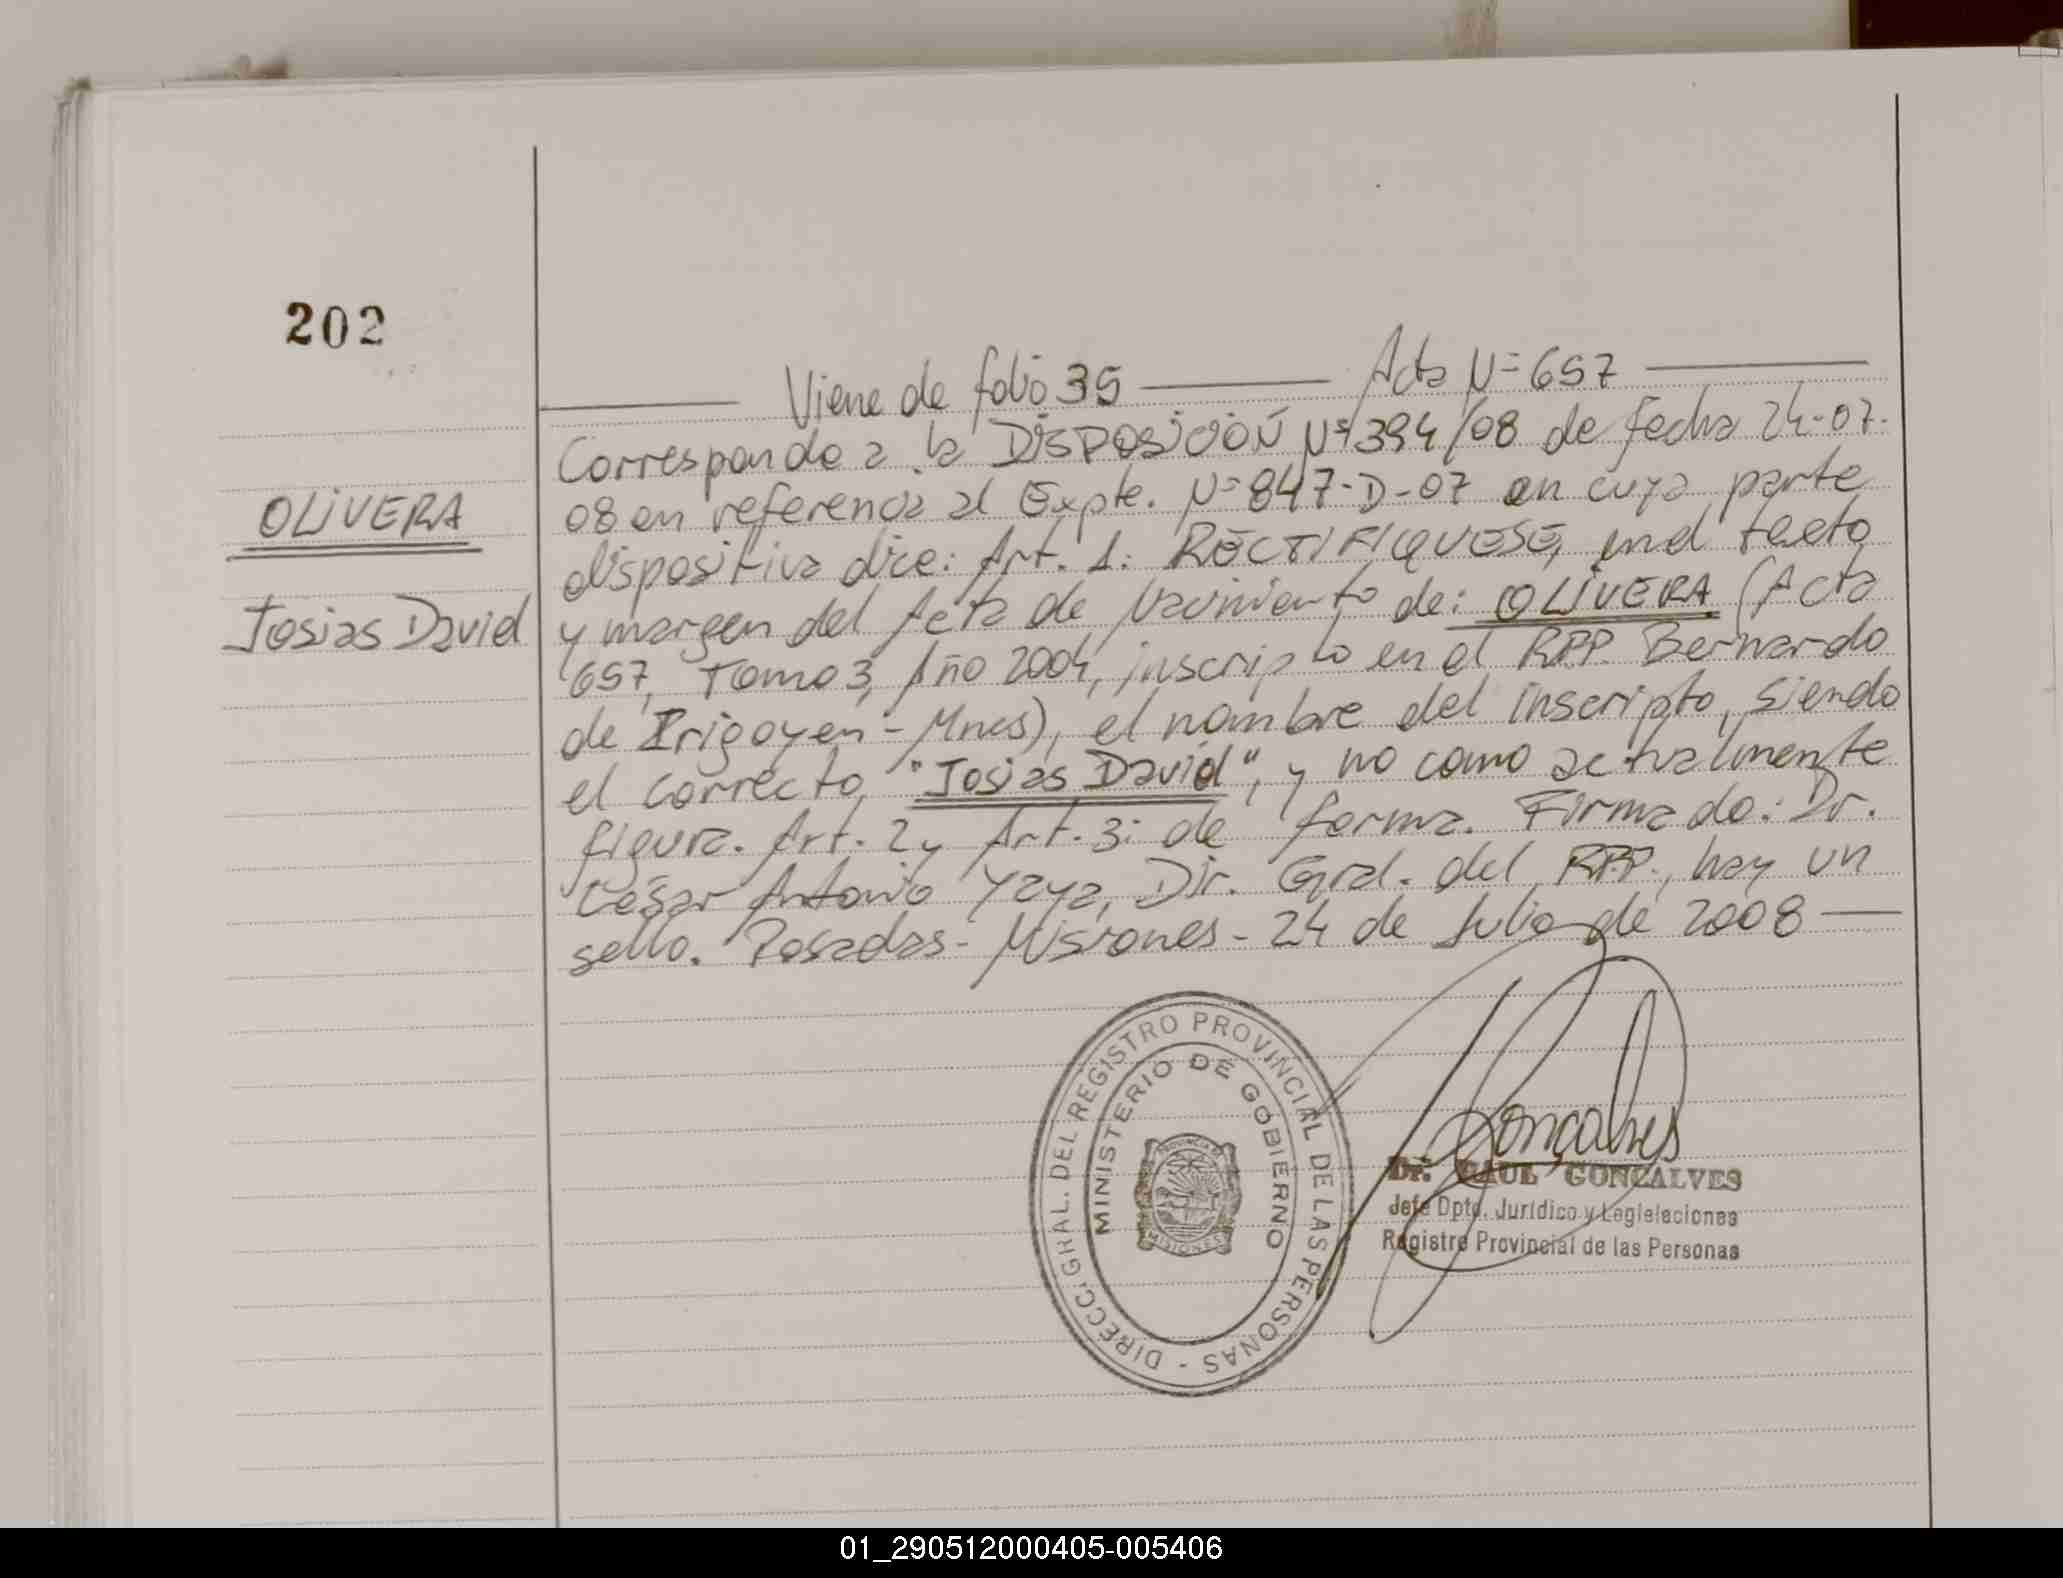 202
OLIVERA
Josias David
Viene de folio 35 — Acta Nº 657 —
Corresponde a la DISPOSICIÓN Nº 394/08 de fecha 24-07-
08 en referencia al Expte. Nº 847-D-07 en cuya parte
dispositiva dice: Art. 1: RECTIFIQUESE, en el texto
y margen del Acta de Nacimiento de: OLIVERA (Acta
657, Tomo 3, Año 2004, inscripto en el RPP. Bernardo
de Irigoyen - Mnes), el nombre del inscripto, siendo
el correcto, "Josias David", y no como actualmente
figura. Art. 2 y Art. 3: de forma. Firmado: Dr.
César Antonio Yaya, Dir. Gral. del RPP., hay un
sello. Posadas - Misiones - 24 de Julio de 2008 —
DIRECC. GRAL. DEL REGISTRO PROVINCIAL DE LAS PERSONAS -
MINISTERIO DE GOBIERNO
PROVINCIA D
MISIONES
Gonçalves
Dr. RAUL GONCALVES
Jefe Dpto. Jurídico y Legislaciones
Registro Provincial de las Personas
01_290512000405-005406